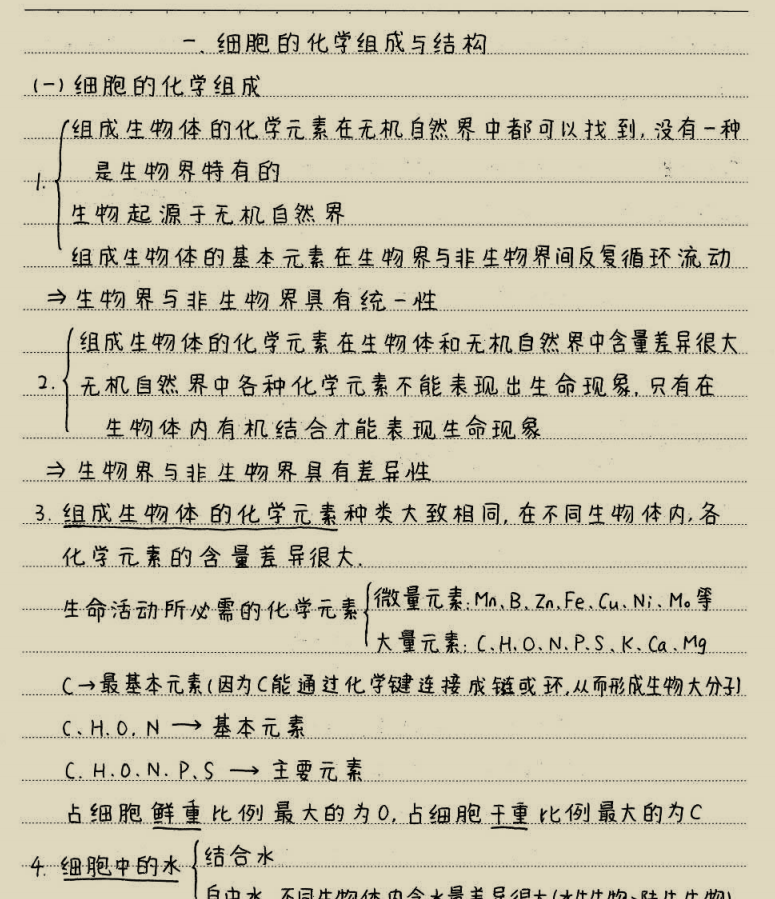 一、细胞的化学组成与结构
(一)细胞的化学组成
组成生物体的化学元素在无机自然界中都可以找到,没有一种
1. 是生物界特有的
生物起源于无机自然界
组成生物体的基本元素在生物界与非生物界间反复循环流动
⇒生物界与非生物界具有统一性
组成生物体的化学元素在生物体和无机自然界中含量差异很大
2. 无机自然界中各种化学元素不能表现出生命现象,只有在
生物体内有机结合才能表现生命现象
⇒生物界与非生物界具有差异性
3. 组成生物体的化学元素种类大致相同,在不同生物体内,各
化学元素的含量差异很大.
生命活动所必需的化学元素
微量元素:Mn、B、Zn、Fe、Cu、Ni、Mo等
大量元素:C、H、O、N、P、S、K、Ca、Mg
C→最基本元素(因为C能通过化学键连接成链或环,从而形成生物大分子)
C、H、O、N→基本元素
C、H、O、N、P、S→主要元素
占细胞鲜重比例最大的为O,占细胞干重比例最大的为C
4. 细胞中的水
结合水
自由水 不同生物体内含水量差异很大(水生生物>陆生生物)